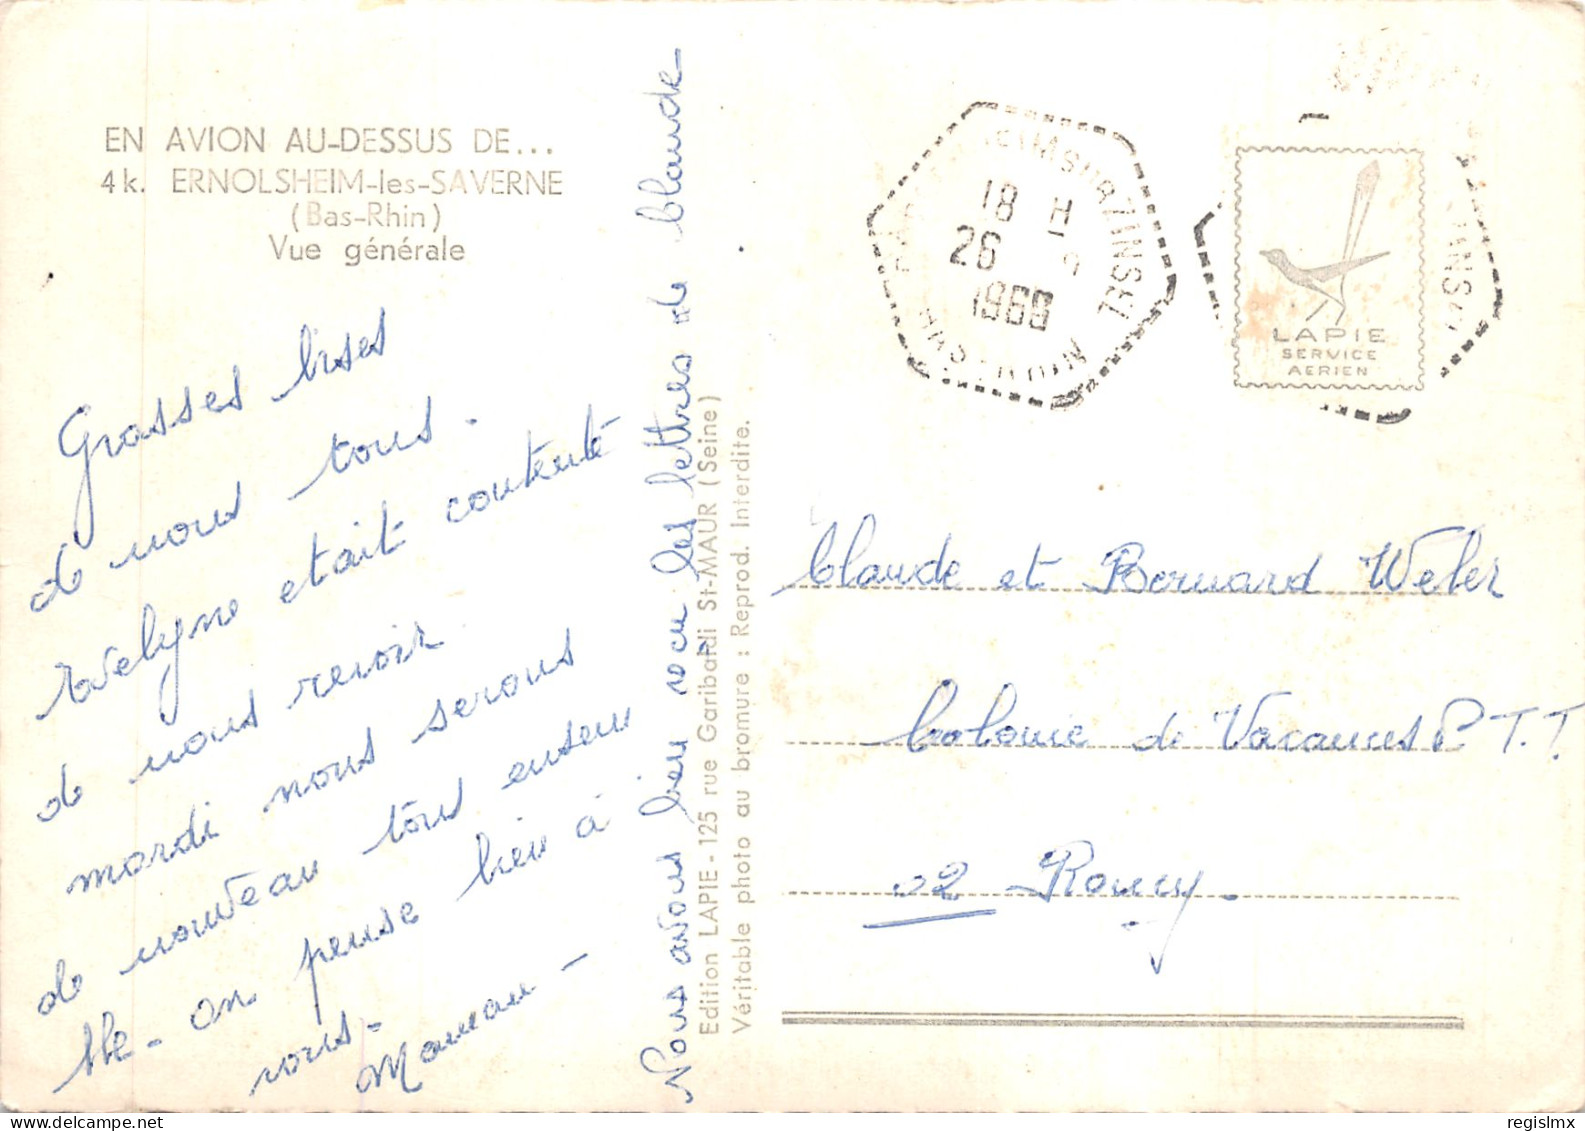 EN AVION AU-DESSUS DE...
4 k. ERNOLSHEIM-les-SAVERNE
(Bas-Rhin)
Vue générale
Grosses bises
de nous tous.
Evelyne etait contente
de nous revoir
mardi nous serons
de nouveau tous ensem
ble - on pense bien à
vous -
Maman -
Nous avons bien reçu les lettres de Claude -
Edition LAPIE - 125 rue Garibaldi St-MAUR (Seine)
Véritable photo au bromure : Reprod. Interdite.
18 H
26 - 9
1969
ZINSEL
LAPIE
SERVICE
AERIEN
Claude et Bernard Weber
Colonie de Vacances P.T.T.
02 Roucy -
regislmx